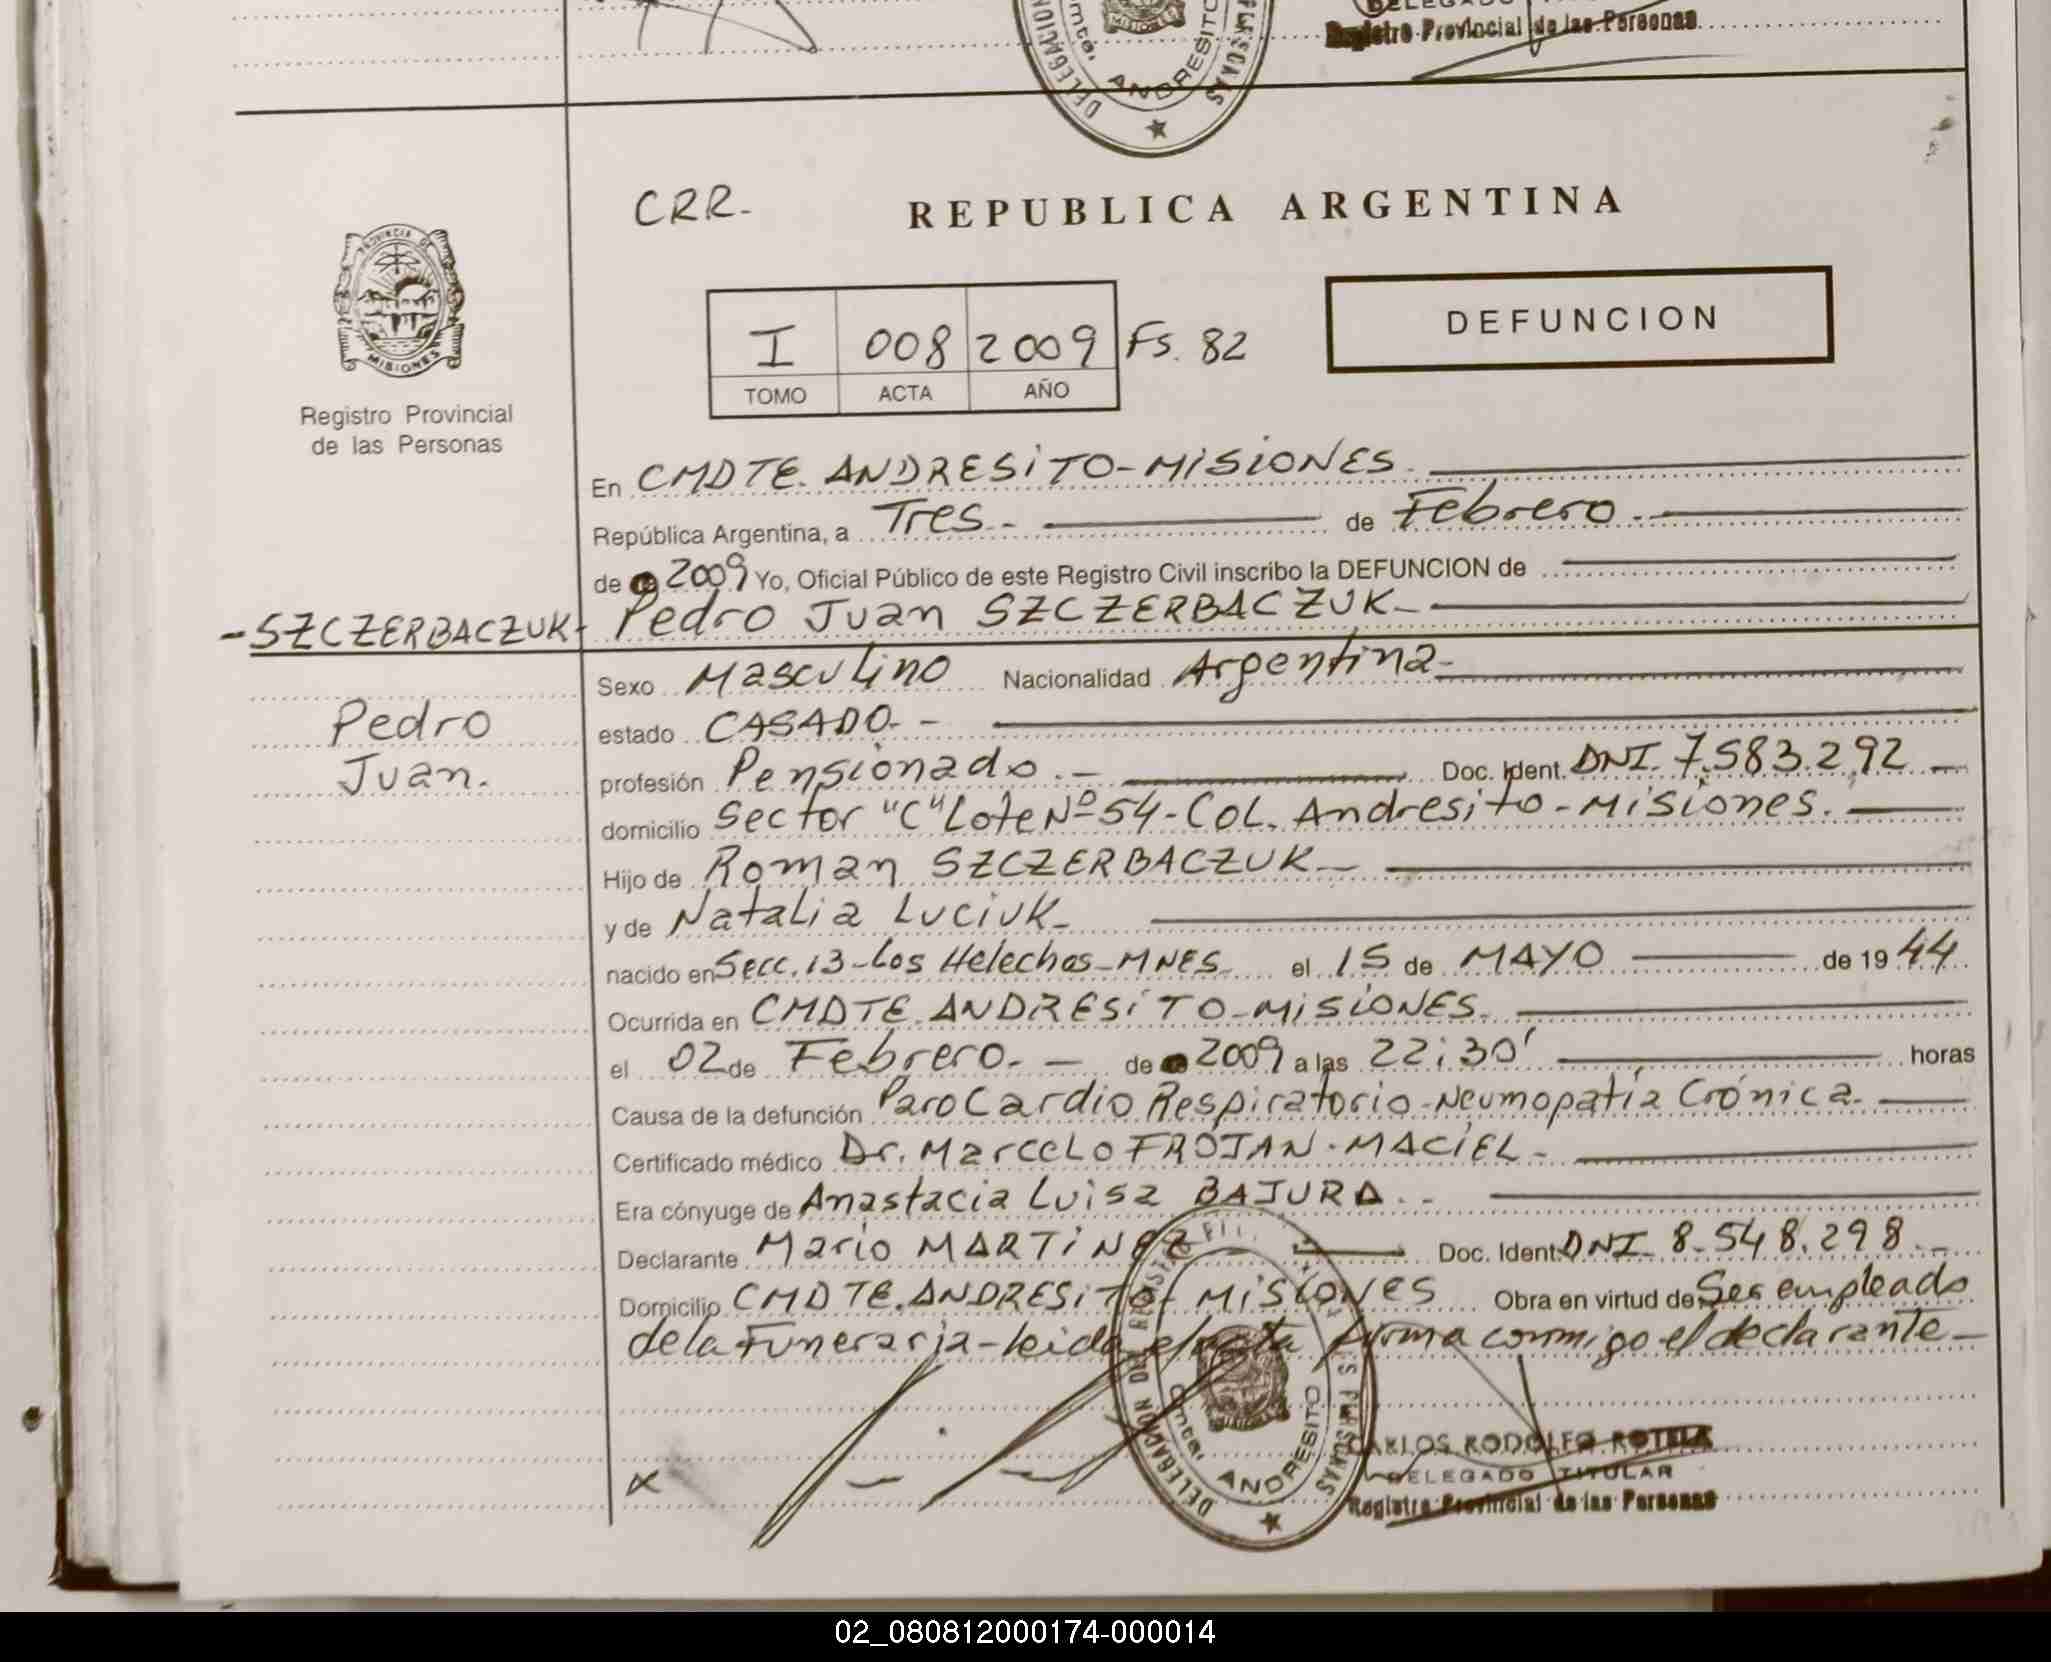 DELEGADO
Registro Provincial de las Personas
DELEGACION
PERSONAS
Cmte. ANDRESITO
MISIONES
CRR.
REPUBLICA ARGENTINA
PROVINCIA DE
MISIONES
Registro Provincial
de las Personas
I 008 2009 Fs. 82
TOMO ACTA AÑO
DEFUNCION
En CMDTE. ANDRESITO-MISIONES.
República Argentina, a Tres.- de Febrero.-
de 2009 Yo, Oficial Público de este Registro Civil inscribo la DEFUNCION de
-SZCZERBACZUK- Pedro Juan SZCZERBACZUK-
Sexo Masculino Nacionalidad Argentina-
Pedro
Juan.
estado CASADO.-
profesión Pensionado.- Doc. Ident. DNI. 7.583.292-
domicilio Sector "C" Lote Nº 54-COL. Andresito-Misiones.
Hijo de Roman SZCZERBACZUK-
y de Natalia LUCIUK-
nacido en Secc. 13-Los Helechos-MNES. el 15 de MAYO de 1944
Ocurrida en CMDTE. ANDRESITO-MISIONES.
el 02 de Febrero.- de 2009 a las 22:30' horas
Causa de la defunción Paro Cardio Respiratorio-Neumopatía Crónica.
Certificado médico Dr. Marcelo FROJAN-MACIEL-
Era cónyuge de Anastacia Luisa BAJURA.-
Declarante Mario MARTINEZ Doc. Ident. DNI. 8.548.298.-
Domicilio CMDTE. ANDRESITO-MISIONES Obra en virtud de Ser empleado
de la Funeraria-leida el acta firma conmigo el declarante-
DELEGACION
PERSONAS
Cmte. ANDRESITO
CARLOS RODOLFO ROTELA
DELEGADO TITULAR
Registro Provincial de las Personas
x
02_080812000174-000014